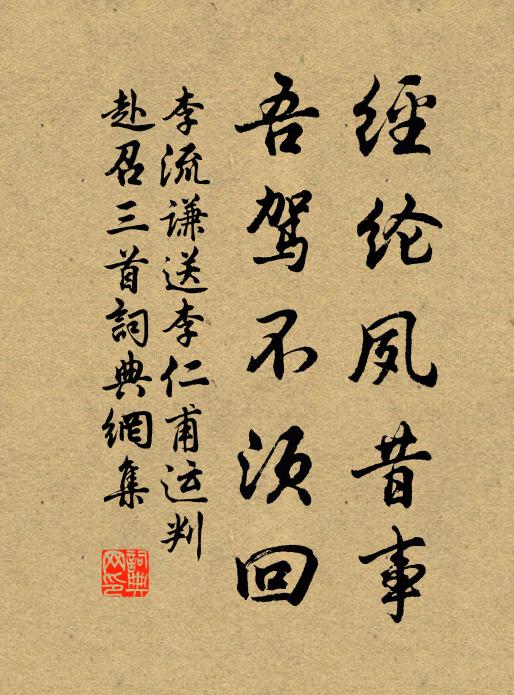 經纶夙昔事
吾驾不须回
李流谦送李仁甫运判
赴召三首詞典網集
詞典網印